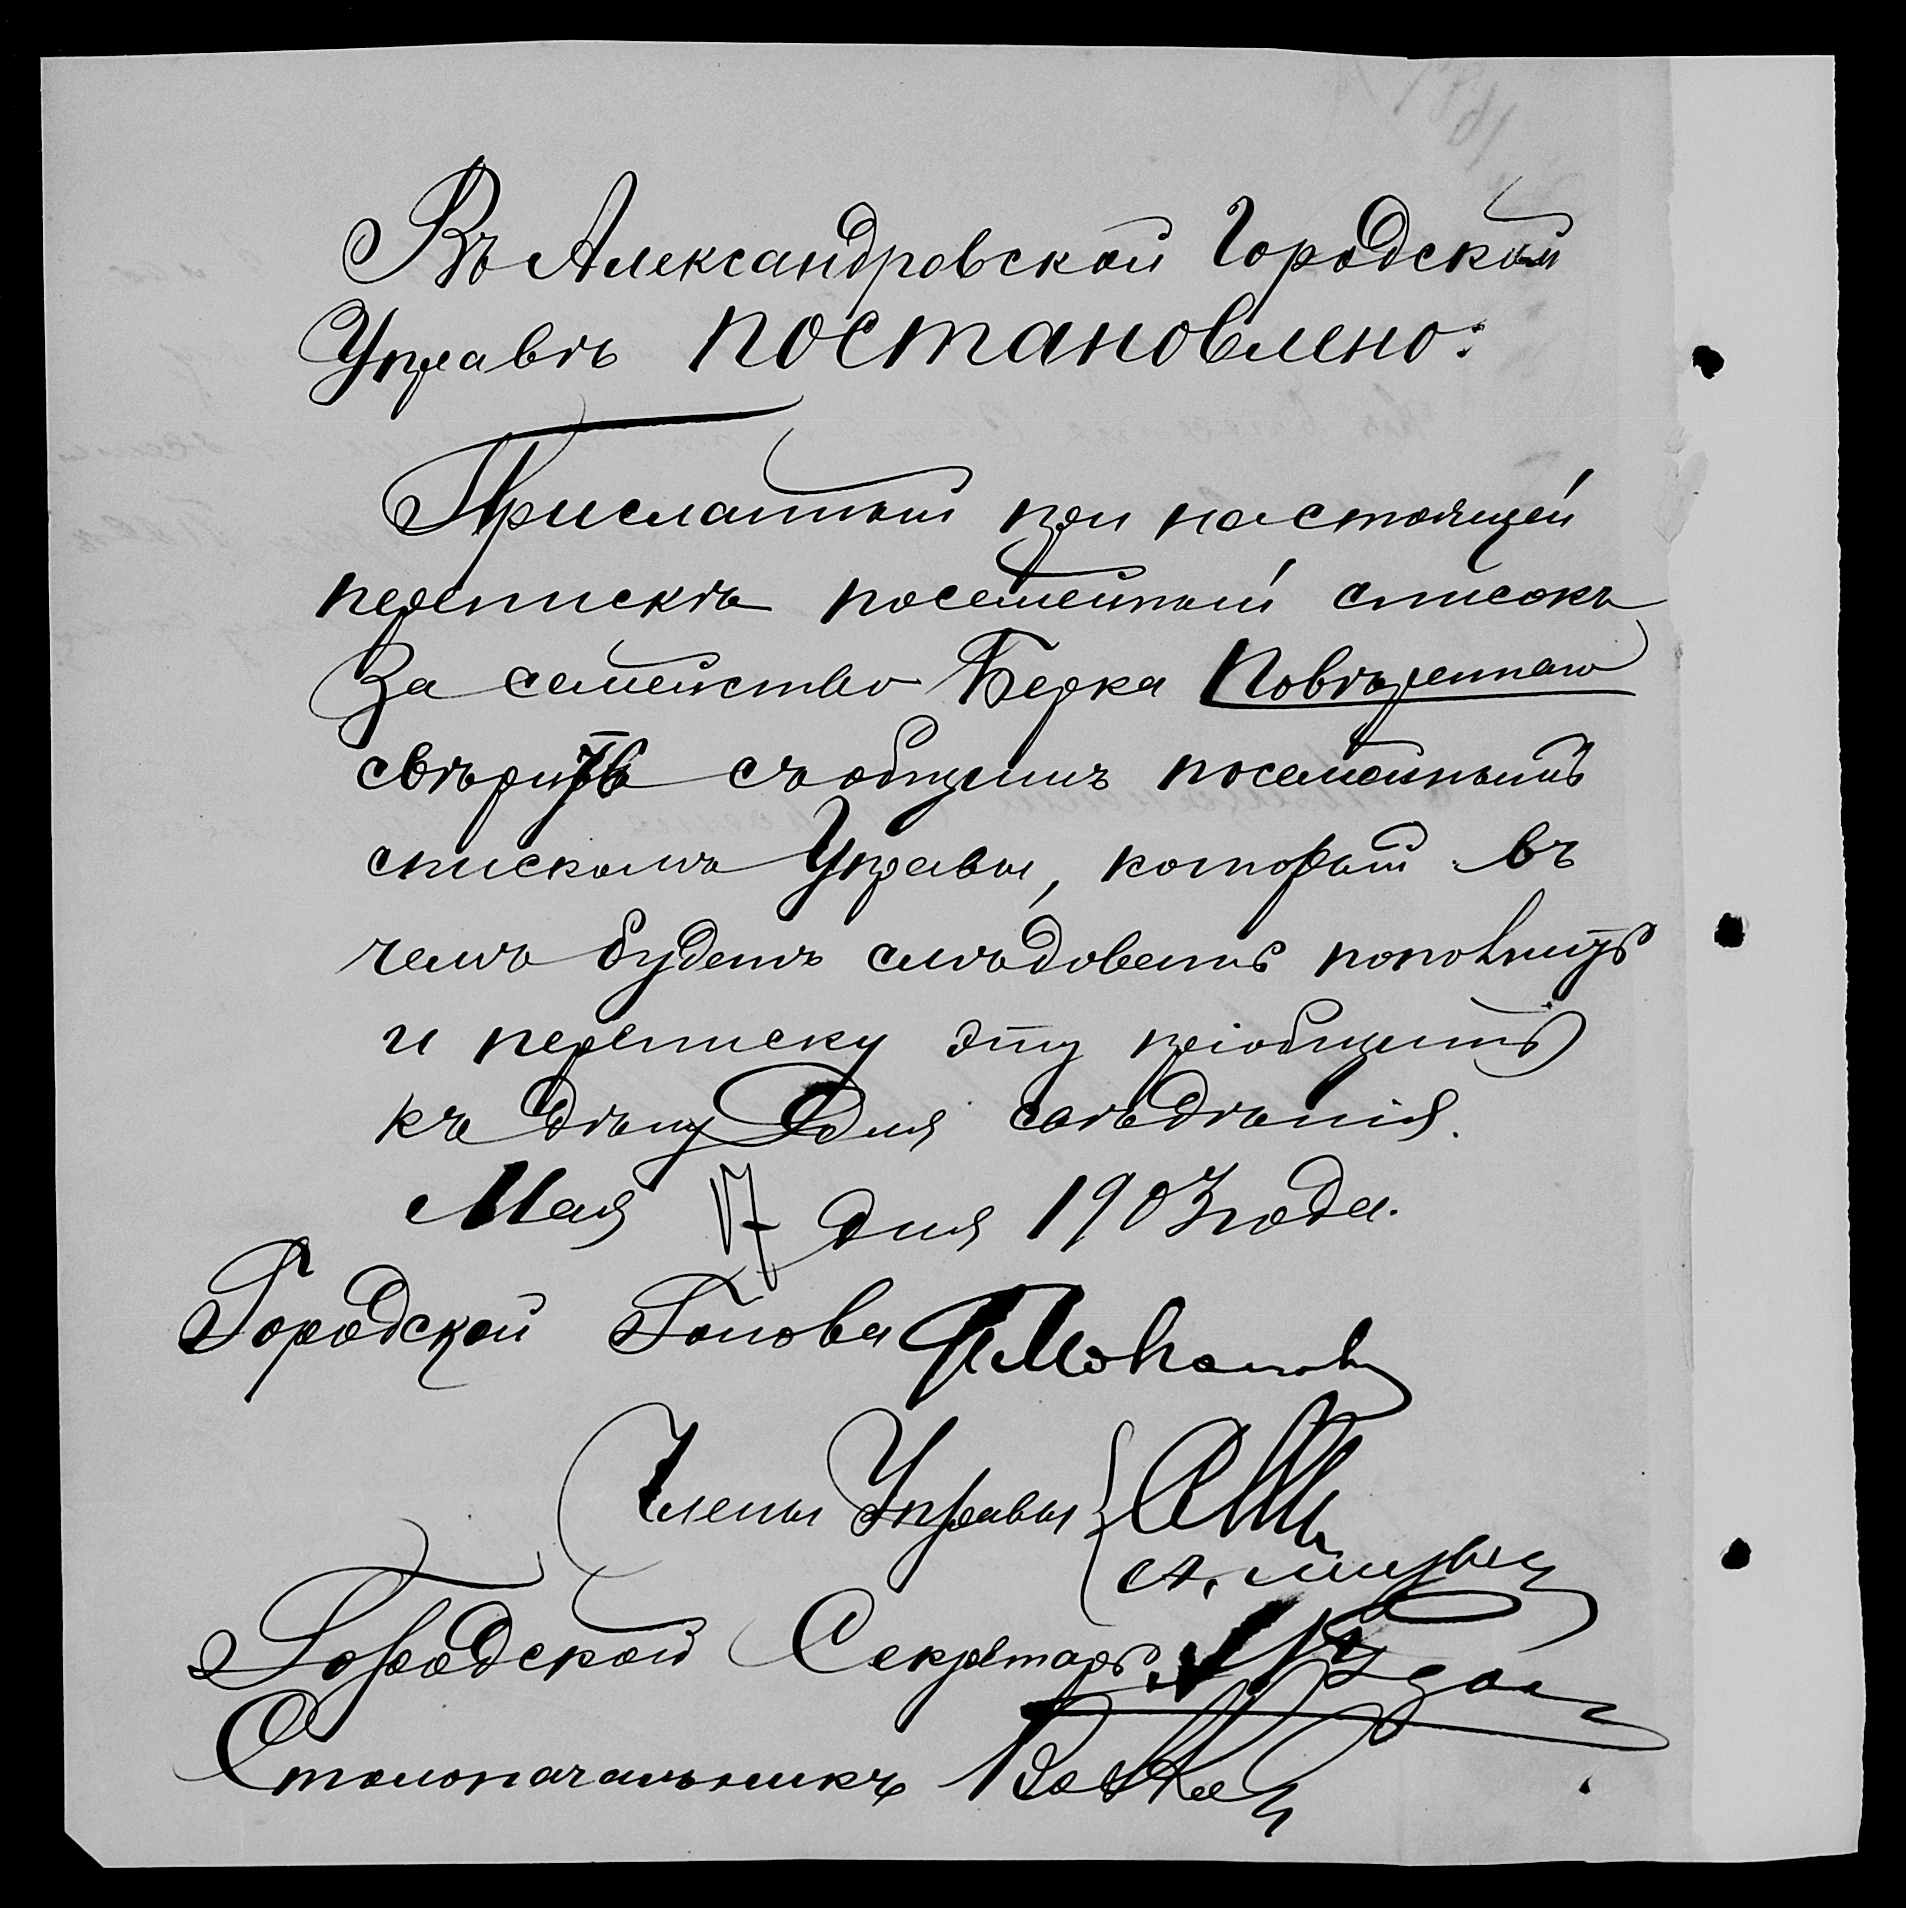 Въ Александровской Городской
Управѣ постановлено:
Присланный при настоящей
перепискѣ посемейный списокъ
За семейство Берка Повѣреннаго
свѣрить съ общимъ посемейнымъ
спискомъ Управы, который въ
чемъ будетъ слѣдовать пополнить
и переписку эту пріобщить
къ дѣлу для свѣдѣнія.
Мая 17 дня 1903 года.
Городской Голова
Члены Управы
Городской Секретарь
Столоначальникъ